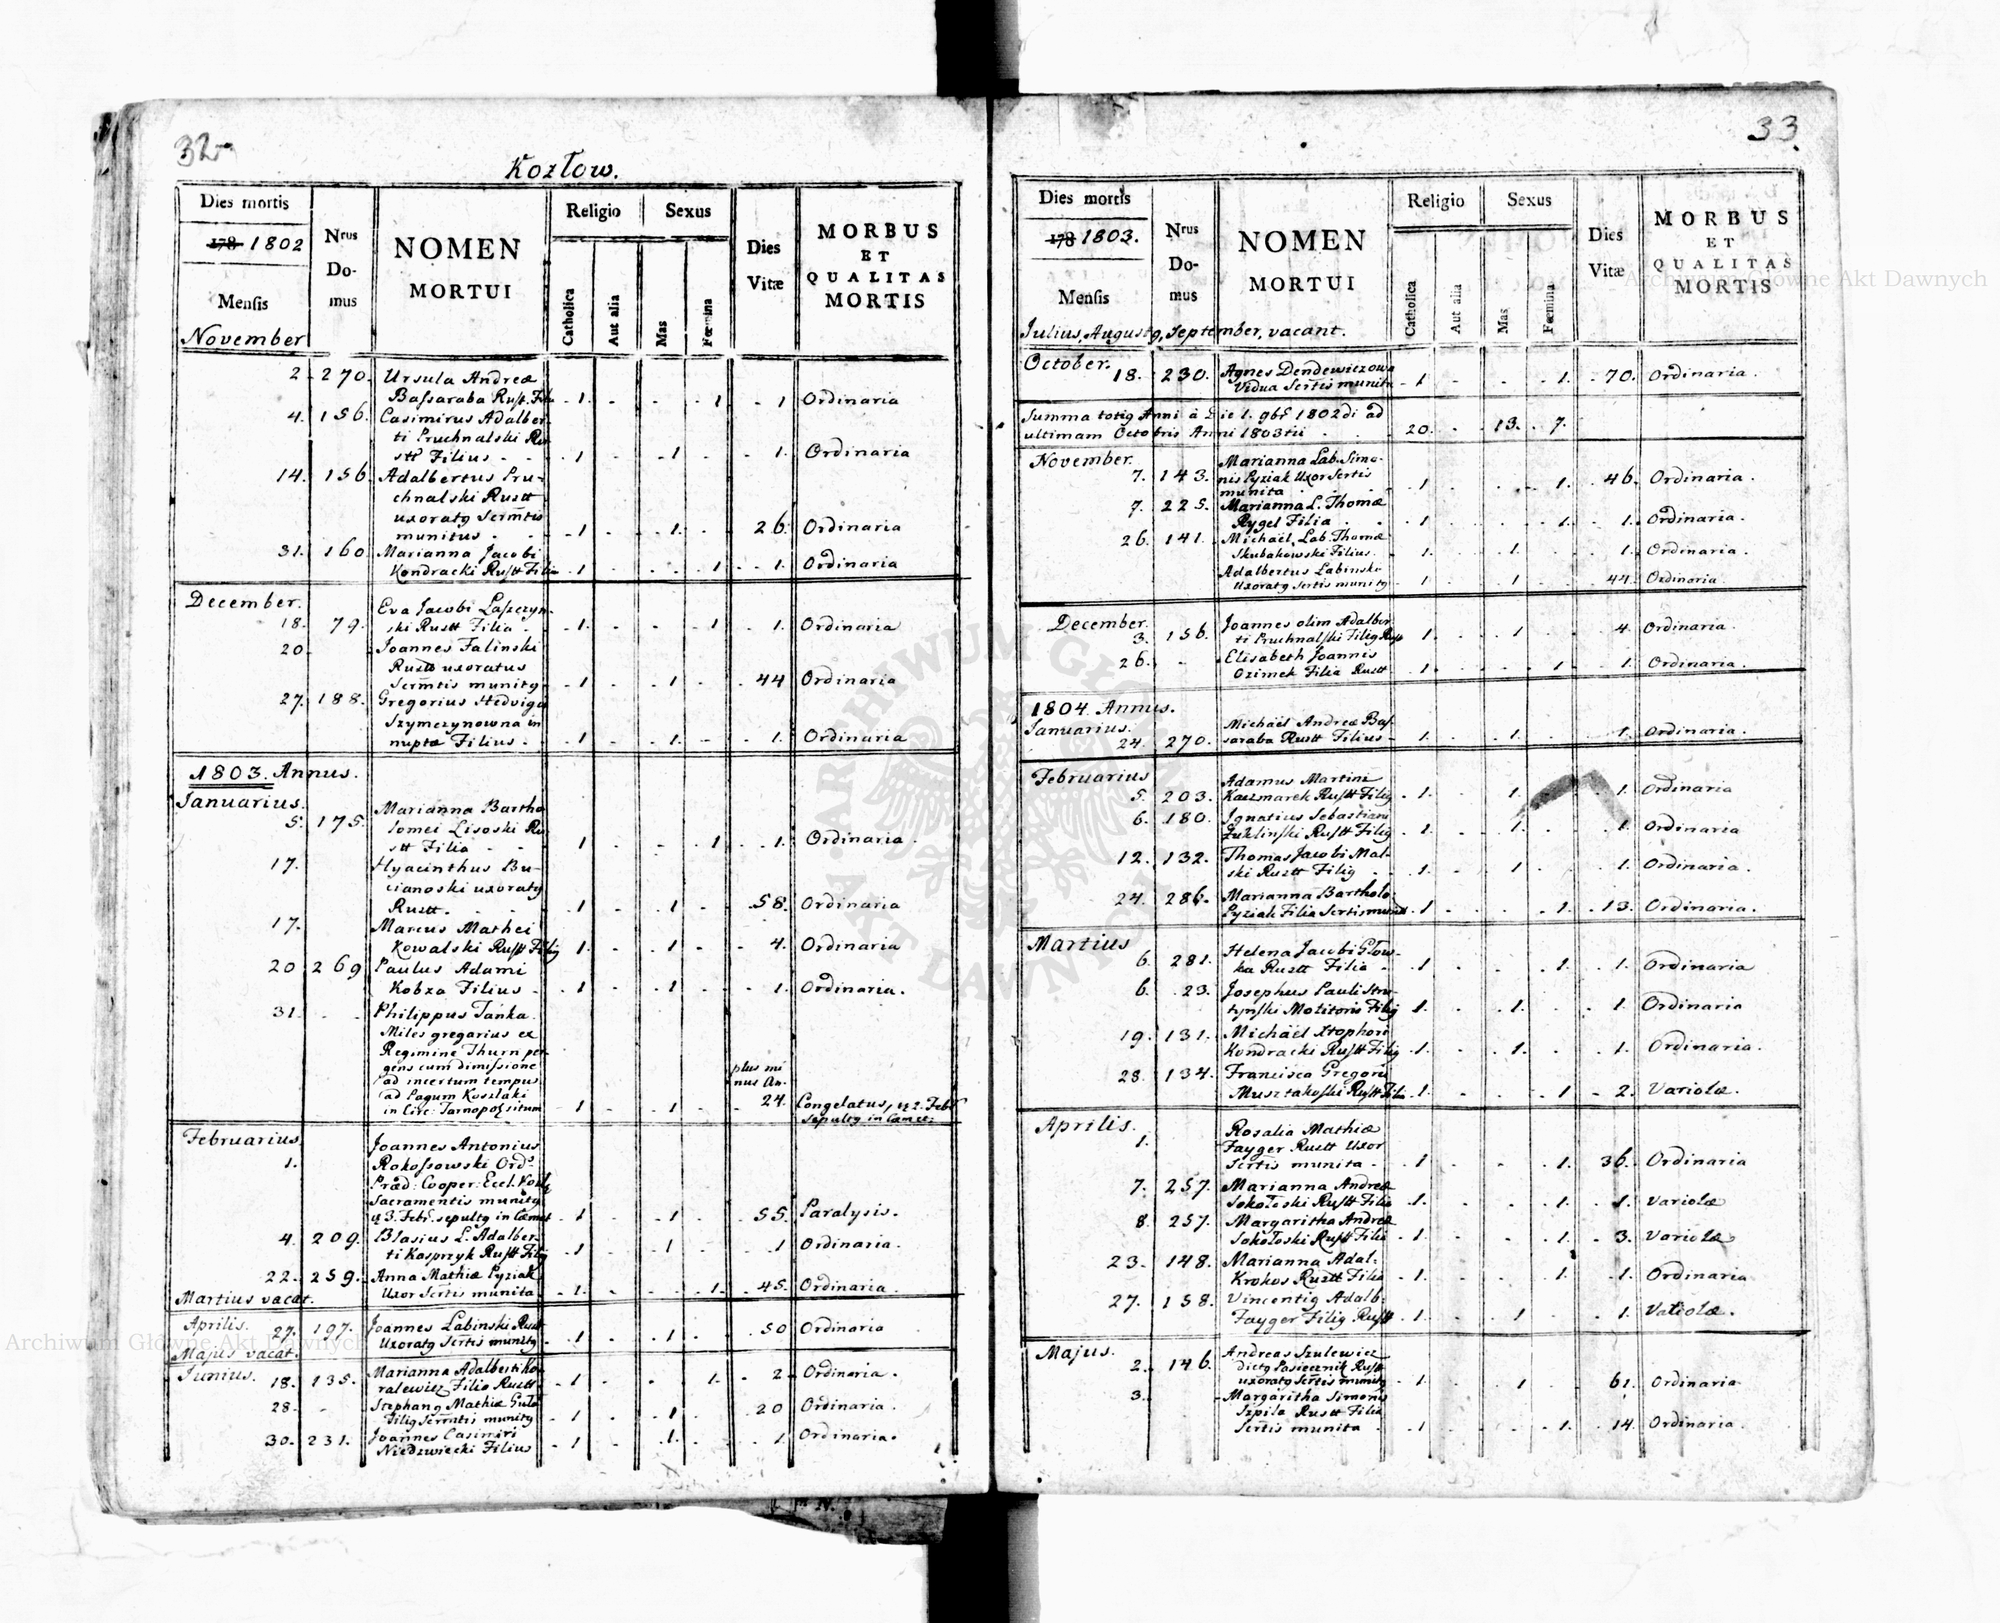 32
Kozłow.
Dies mortis
Nrus Domus
NOMEN MORTUI
Religio
Sexus
Dies Vitæ
MORBUS ET QUALITAS MORTIS
178 1802
Mensis
Catholica
Aut alia
Mas
Fœmina
November
2. 270. Ursula Andreæ
Bassaraba Rust. Filia - 1. - - - 1 - 1 Ordinaria
4. 156. Casimirus Adalber-
ti Pruchnalski Ru-
stt Filius - 1 - - 1 - - 1. Ordinaria
14. 156 Adalbertus Pru-
chnalski Rustt
uxoratg Sermtis
munitus - 1 - - 1. - 26. Ordinaria
31. 160. Marianna Jacobi
Kondracki Rustt Filia 1 - - - 1 - 1. Ordinaria
December.
Eva Jacobi
18. 79. ski Rustt Filia - 1. - - - 1 - 1. Ordinaria
20. Joannes Falinski
Rustt uxoratus
Sermtis munitg - 1 - - 1 - - 44 Ordinaria
27. 188. Gregorius Hedvigæ
Szymczynowna in
nuptæ Filius - 1 - - 1. - - 1. Ordinaria
1803. Annus.
Januarius.
Marianna Bartho
5. 175. lomei Lisoski Ru
stt Filia - - 1 - - - 1 - 1. Ordinaria.
17. Hyacinthus Bu-
cianoski uxoratg
Rustt. - - 1 - - 1 - - 58. Ordinaria
17. Marcus Mathei
Kowalski Rustt Filig 1. - - 1 - - 4. Ordinaria
20 269 Paulus Adami
Kobza Filius - 1 - - 1 - - 1. Ordinaria.
31. - - Philippus Tańka.
Miles gregarius ex
Regimine Thurn per
gens cum dimissione
ad incertum tempus
plus mi
nus An.
ad Pagum Koszlaki
in Circ. Tarnopol situm - 1 - - 1 - - 24. Congelatus, et 2. Febr
sepultg in Cæmet.
Februarius.
Joannes Antonius
1. Rokossowski Ords
Præd: Cooper: Eccl. Kozl
Sacramentis munitg
et 3. Febr. sepultg in Cæmet - 1 - - 1 - - 55. Paralysis.
4. 209. Blasius L. Adalber-
ti Kasprzyk Rustt Filig 1 - - 1 - - 1 Ordinaria.
22. 259. Anna Mathiæ Pyziak
Uxor Sertis munita - 1. - - - 1. - 45. Ordinaria.
Martius vacat.
Aprilis.
27. 197. Joannes Labinski Rustt
Uxoratg Sertis munitg - 1 - - 1. - - 50 Ordinaria
Majus vacat.
Junius. 18. 135. Marianna Adalberti Ko-
ralewicz Filia Rustt - 1 - - - 1. - 2 Ordinaria.
28. - Stephang Mathiæ
Filig Sermtis munitg - 1 - - 1 - - 20 Ordinaria.
30. 231. Joannes Casimiri
Niedzwiecki Filius - 1 - - 1. - - 1 Ordinaria.
33.
Dies mortis
Nrus Domus
NOMEN MORTUI
Religio
Sexus
Dies Vitæ
MORBUS ET QUALITAS MORTIS
178 1803.
Mensis
Catholica
Aut alia
Mas
Fœmina
Julius, Augustg, September, vacant.
October.
18. 230. Agnes Dendewiczowa
Vidua Sertis munita - 1 - - - 1. - 70. Ordinaria.
Summa totig Anni à Die 1. 9br 1802di ad
ultimam Octobris Anni 1803tii - 20. - - 13. - 7.
November. Marianna Lab. Simo-
7. 143. nis Pyziak Uxor Sertis
munita - 1 - - - 1. - 46. Ordinaria.
7. 225. Marianna L. Thomæ
Rygel Filia - 1 - - - 1. - 1. Ordinaria.
26. 141. Michaël Lab. Thomæ
Skubakowski Filius - 1. - - 1. - - 1. Ordinaria.
Adalbertus Labinski
Uxoratg Sertis munitg - 1 - - 1 - - 44. Ordinaria.
December.
3. 156. Joannes olim Adalber
ti Pruchnalski Filig Rust 1. - - 1 - - 4. Ordinaria.
26. - Elisabeth Joannis
Ozimek Filia Rustt 1. - - - 1 - 1. Ordinaria.
1804. Annus.
Januarius. Michaël Andreæ Bas-
24. 270. saraba Rustt Filius - 1. - - 1. - - 1. Ordinaria.
Februarius
Adamus Martini
5. 203. Kaczmarek Rustt Filig - 1. - - 1. - - 1. Ordinaria
6. 180. Ignatius Sebastiani
Rustt Filig - 1. - - 1. - - 1. Ordinaria
12. 132. Thomas Jacobi Mal-
ski Rustt Filig - 1. - - 1 - - 1. Ordinaria.
24. 286. Marianna Bartholo.
Pyziak Filia Sertis munit 1 - - - 1. - 13. Ordinaria.
Martius
6. 281. Helena Jacobi Głow-
ka Rustt Filia - 1 - - - 1. - 1. Ordinaria
6. 23. Josephus Pauli Stru-
tynski Molitoris Filig 1. - - 1. - - 1. Ordinaria
19. 131. Michaël Xtophori
Kondracki Rustt Filig 1. - - 1. - - 1. Ordinaria.
28. 134. Francisca Gregorii
Musztakoski Rustt Filia 1. - - - 1 - 2. Variolæ.
Aprilis.
1. Rosalia Mathiæ
Fayger Rustt Uxor
Sertis munita - 1 - - - 1. 36. Ordinaria
7. 257. Marianna Andreæ
Sokołoski Rustt Filia 1. - - - 1. - 1. Variolæ
8. 257. Margaritha Andreæ
Sokołoski Rustt Filia 1. - - - 1. - 3. Variolæ
23. 148. Marianna Adal:
Krokos Rustt Filia - 1. - - - 1. - 1. Ordinaria
27. 158. Vincentig Adalb:
Fayger Filig Rustt 1. - - 1 - - 1. Variolæ.
Majus. Andreas Szulewicz
2. 146. dictg Pasiecznik Rustt
uxoratg Sertis munitg - 1. - - 1 - - 61. Ordinaria
3. Margaritha Simonis
Szpila Rustt Filia
Sertis munita - 1 - - - 1. - 14. Ordinaria.
ARCHIWUM GŁÓWNE AKT DAWNYCH
Archiwum Główne Akt Dawnych
Archiwum Główne Akt Dawnych